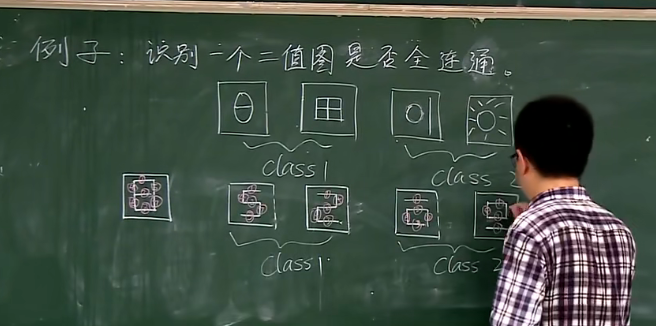 例子：识别一个二值图是否全连通。
class1 class 2
class1 class 2